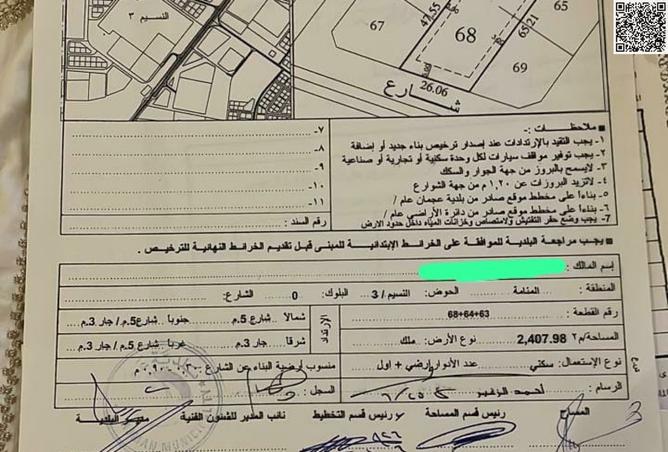 النسيم ٣
67
68
65
69
47.55
65.21
26.06
شارع
ملاحظات :-
١- يجب التقيد بالإرتدادات عند إصدار ترخيص بناء جديد أو إضافة
٢- يجب توفير مواقف سيارات لكل وحدة سكنية أو تجارية أو صناعية
٣- لايسمح بالبروز من جهة الجوار والسكك
٤- لاتزيد البروزات عن ١,٢٠ م من جهة الشوارع
٥- بناءاً على مخطط موقع صادر من بلدية عجمان عام /
٦- بناءاً على مخطط موقع صادر من دائرة الأراضي عام /
7- يجب وضع حفر التفتيش والامتصاص وخزانات المياه داخل حدود الارض
٧-
٨-
٩-
١٠-
١١-
رقم السند :
يجب مراجعة البلدية للموافقة على الخرائط الإبتدائية للمبنى قبل تقديم الخرائط النهائية للترخيص .
إسم المالك :
المنطقة : المنامة الحوض: النسيم / 3 البلوك: 0 الشارع:
رقم القطعة : 63+64+68
المساحة/م٢ 2,407.98 نوع الأرض: ملك
نوع الإستعمال: سكني عدد الأدوار: أرضي + اول
الإرتداد
شمالا شارع 5.م جنوبا شارع 5.م / جار 3.م
شرقا جار 3.م غربا شارع 5.م / جار 3.م
منسوب أرضية البناء عن الشارع :
الرسام : السجل :
المساح رئيس قسم المساحة رئيس قسم التخطيط نائب المدير للشئون الفنية مدير البلدية